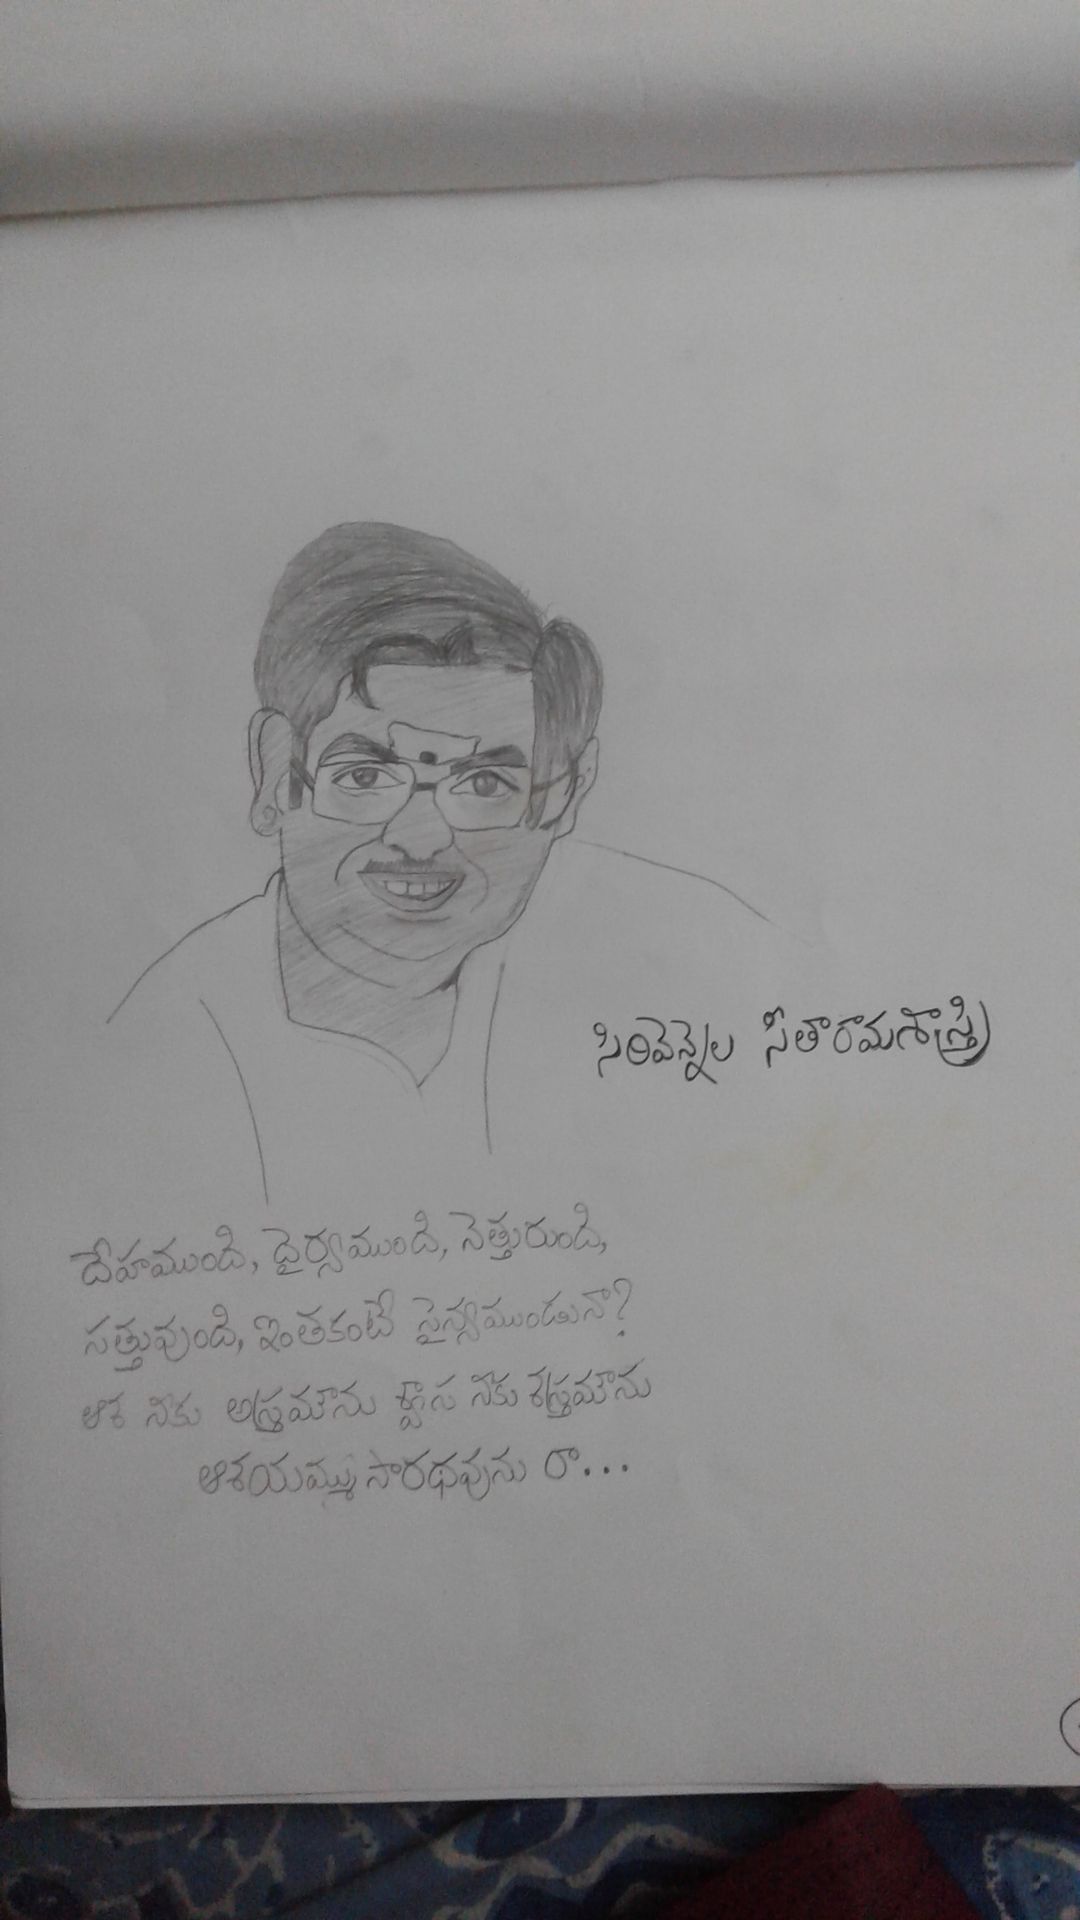 సిరివెన్నెల సీతారామశాస్త్రి
దేహముంది, ధైర్యముంది, నెత్తురుంది,
సత్తువుంది, ఇంతకంటే సైన్యముండునా?
ఆశ నీకు అస్త్రమౌను శ్వాస నీకు శస్త్రమౌను
ఆశయమ్ము సారథవును రా...